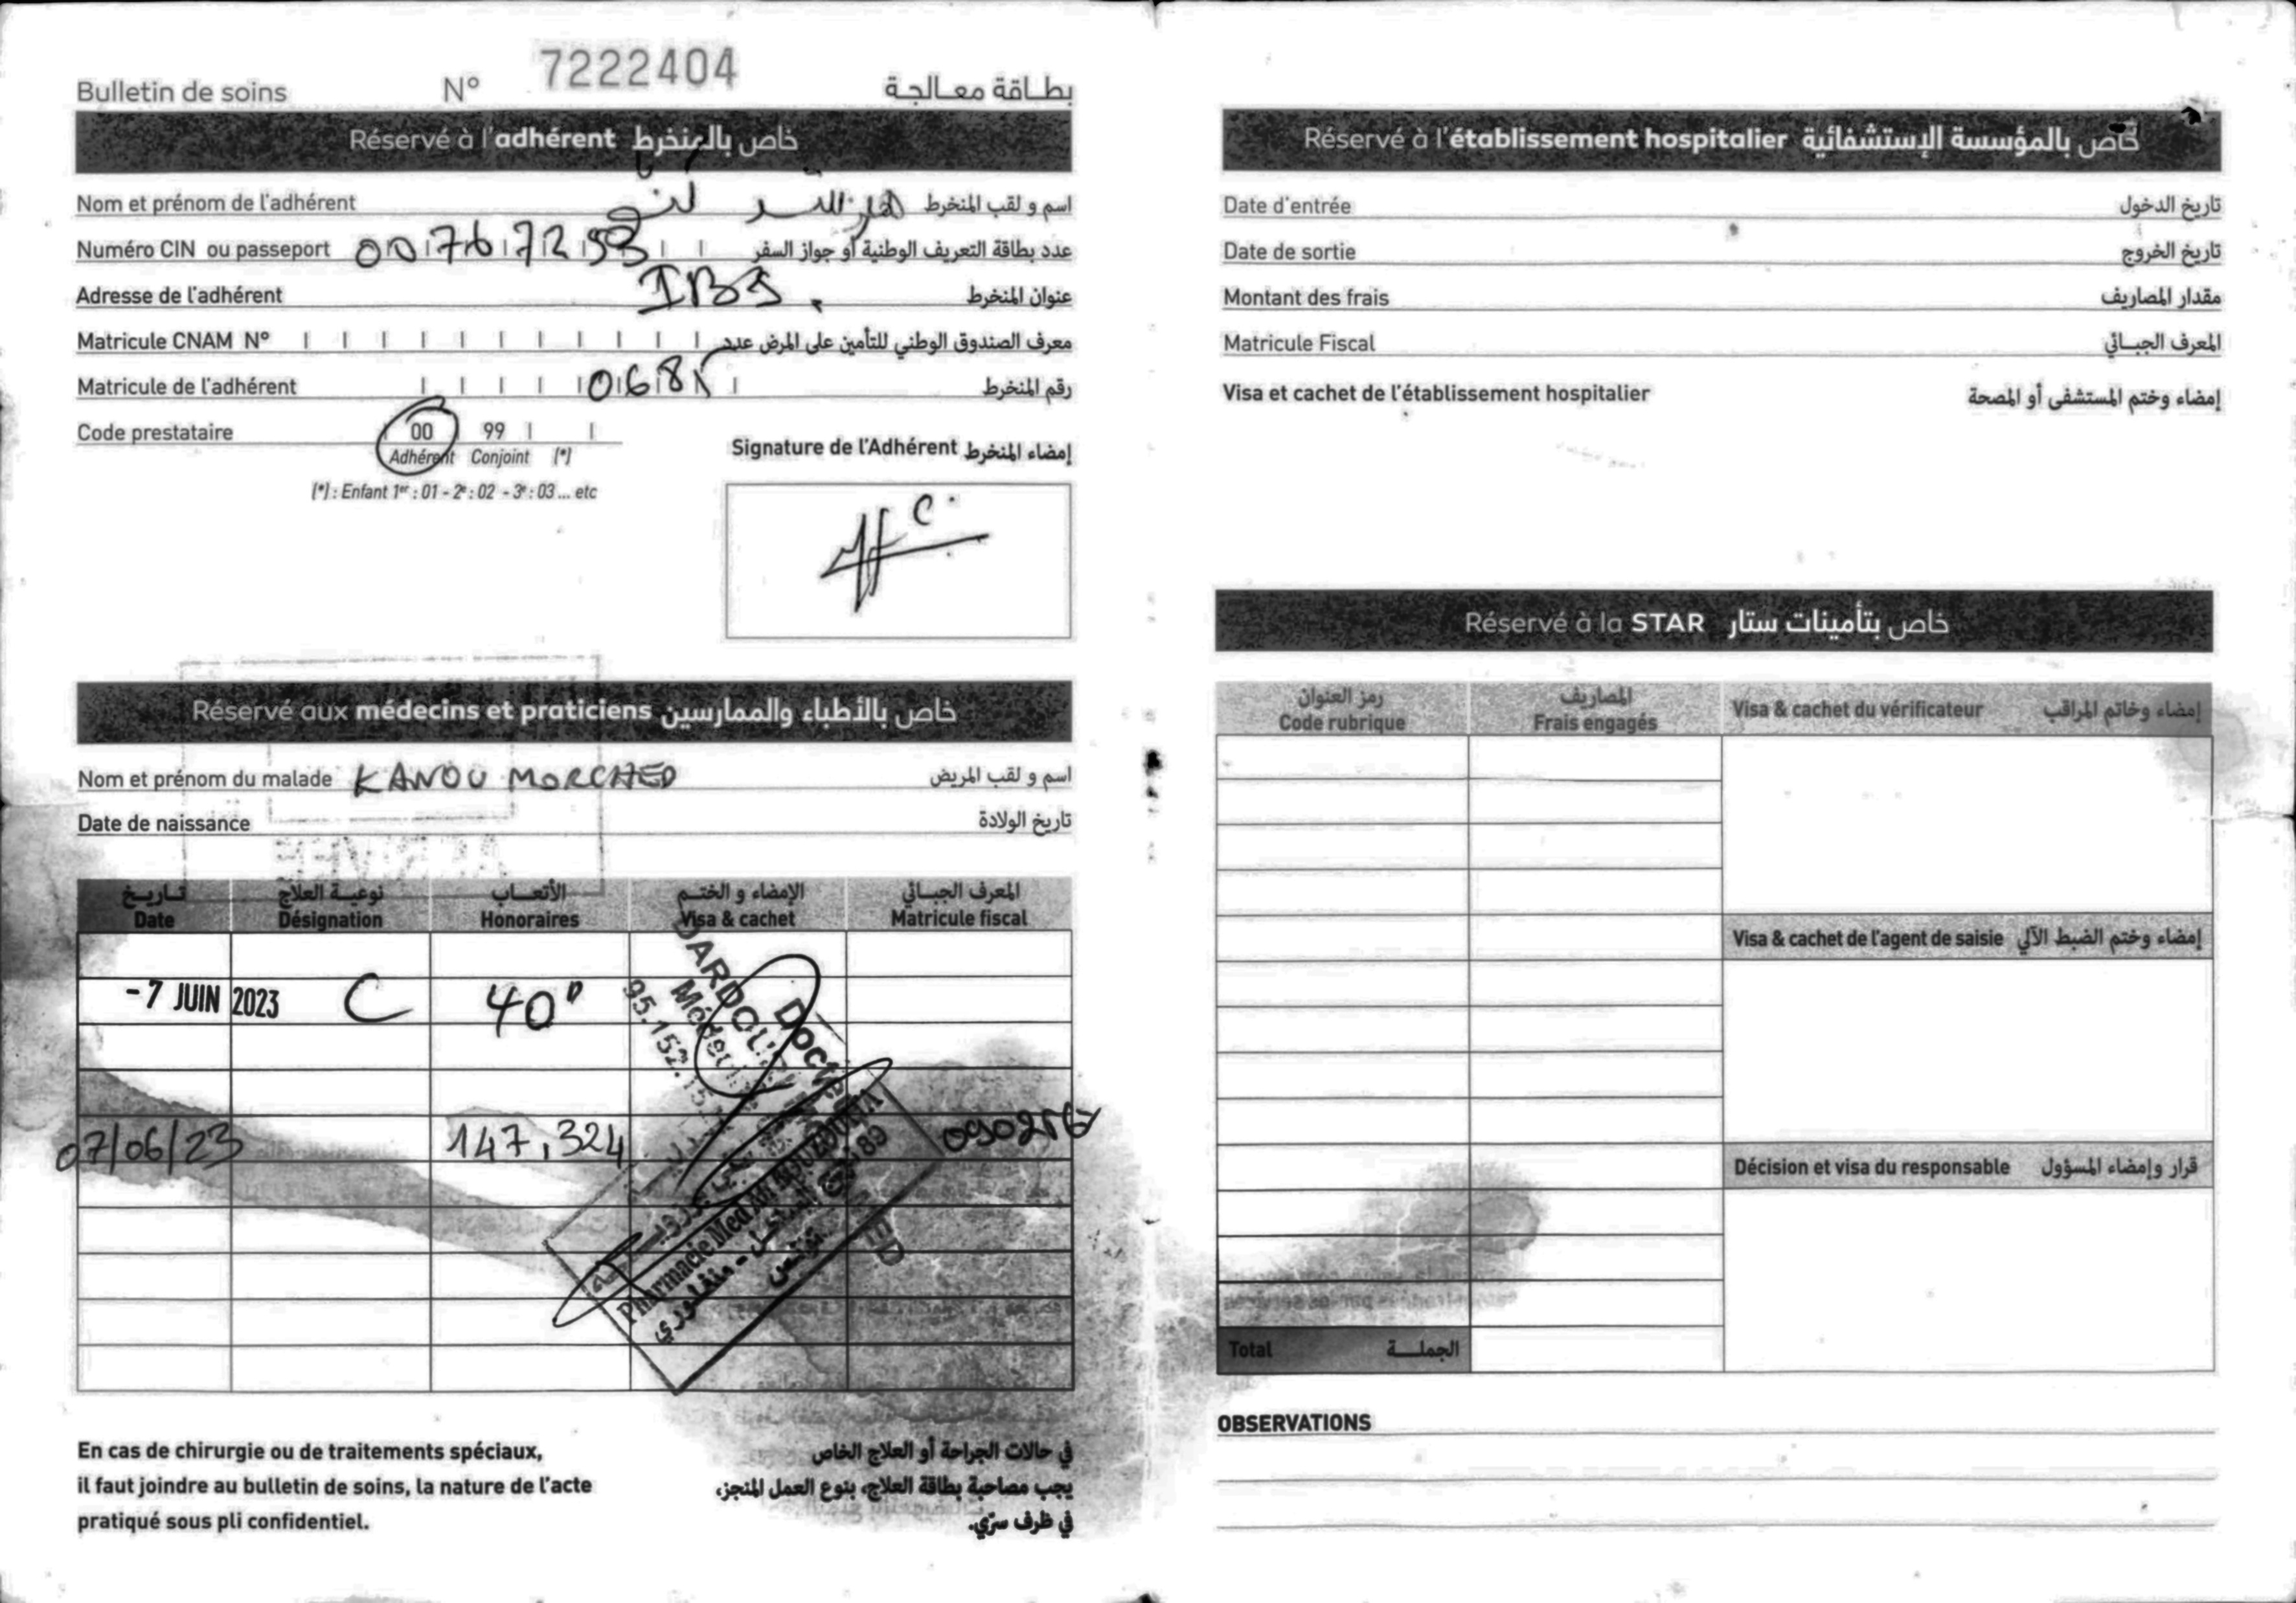 Bulletin de soins N° 7222404 بطاقة معالجة
Réservé à l'adhérent خاص بالمنخرط
Nom et prénom de l'adhérent اسم و لقب المنخرط
Numéro CIN ou passeport 00767253 عدد بطاقة التعريف الوطنية أو جواز السفر
Adresse de l'adhérent IBS. عنوان المنخرط
Matricule CNAM N° معرف الصندوق الوطني للتأمين على المرض عدد
Matricule de l'adhérent 0681 رقم المنخرط
Code prestataire 00 99
Adhérent Conjoint (*)
(*) : Enfant 1er : 01 - 2e : 02 - 3e : 03 ... etc
Signature de l'Adhérent إمضاء المنخرط
Réservé aux médecins et praticiens خاص بالأطباء والممارسين
Nom et prénom du malade KANOU MORCHED اسم و لقب المريض
Date de naissance تاريخ الولادة
تاريخ نوعية العلاج الأتعاب الإمضاء و الختم المعرف الجبائي
Date Désignation Honoraires Visa & cachet Matricule fiscal
- 7 JUIN 2023 C 40D
Docteur
DARDOUR
Médecin
95.152.15
07/06/23 147,324
Pharmacie Med
تونس
En cas de chirurgie ou de traitements spéciaux,
il faut joindre au bulletin de soins, la nature de l'acte
pratiqué sous pli confidentiel.
في حالات الجراحة أو العلاج الخاص
يجب مصاحبة بطاقة العلاج، بنوع العمل المنجز،
في ظرف سرّي.
Réservé à l'établissement hospitalier خاص بالمؤسسة الإستشفائية
Date d'entrée تاريخ الدخول
Date de sortie تاريخ الخروج
Montant des frais مقدار المصاريف
Matricule Fiscal المعرف الجبائي
Visa et cachet de l'établissement hospitalier إمضاء وختم المستشفى أو المصحة
Réservé à la STAR خاص بتأمينات ستار
رمز العنوان المصاريف
Code rubrique Frais engagés Visa & cachet du vérificateur إمضاء وخاتم المراقب
Visa & cachet de l'agent de saisie إمضاء وختم الضبط الآلي
Décision et visa du responsable قرار وإمضاء المسؤول
Total الجملة
OBSERVATIONS